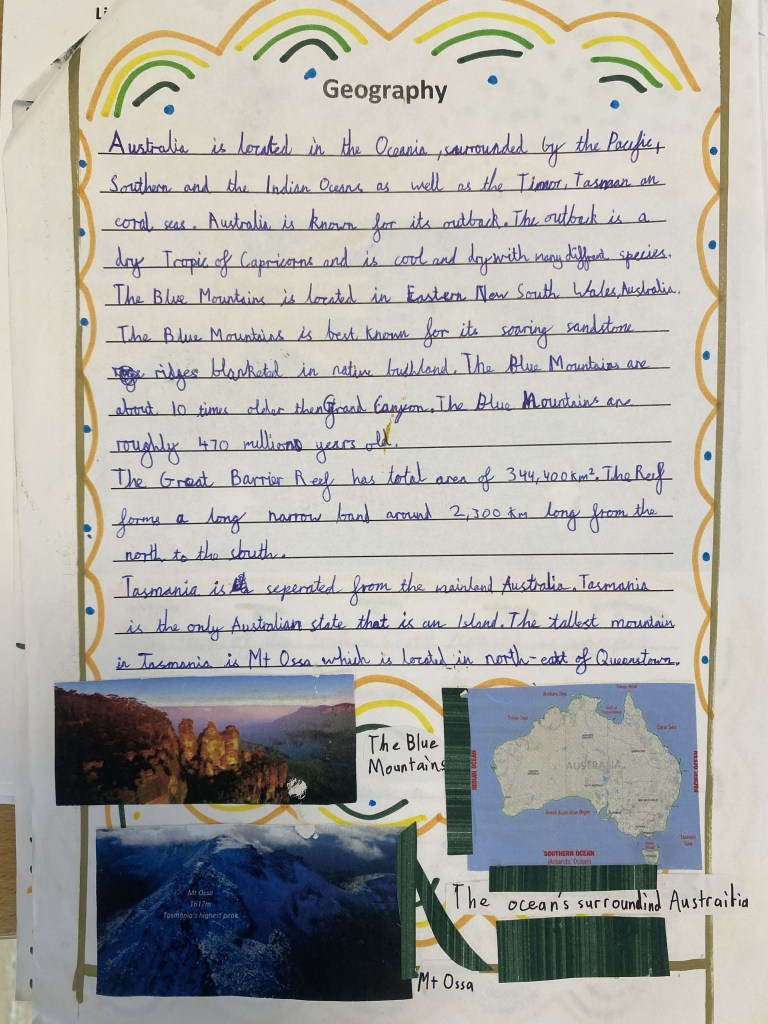 Li
Geography
Australia is located in the Oceania, surrounded by the Pacific,
Southern and the Indian Oceans as well as the Timor, Tasman an
coral seas. Australia is known for its outback. The outback is a
dry Tropic of Capricorns and is cool and dry with many diffrent species.
The Blue Mountains is located in Eastern New South Wales, Australia.
The Blue Mountains is best known for its soaring sandstone
ridges blanketed in native bushland. The Blue Mountains are
about 10 times older then Grand Canyon. The Blue Mountains are
roughly 470 millions years old.
The Great Barrier Reef has total area of 344,400km². The Reef
forms a long narrow band around 2,300 km long from the
north to the south.
Tasmania is seperated from the mainland Australia. Tasmania
is the only Australian state that is an Island. The tallest mountain
in Tasmania is Mt Ossa which is located in north-east of Queenstown.
The Blue
Mountains
Timor Sea
Coral Sea
INDIAN OCEAN
AUSTRALIA
PACIFIC OCEAN
Tasman Sea
SOUTHERN OCEAN
(Antarctic Ocean)
Mt Ossa
1617m
Tasmania's highest peak
The ocean's surroundind Austrailia
Mt Ossa